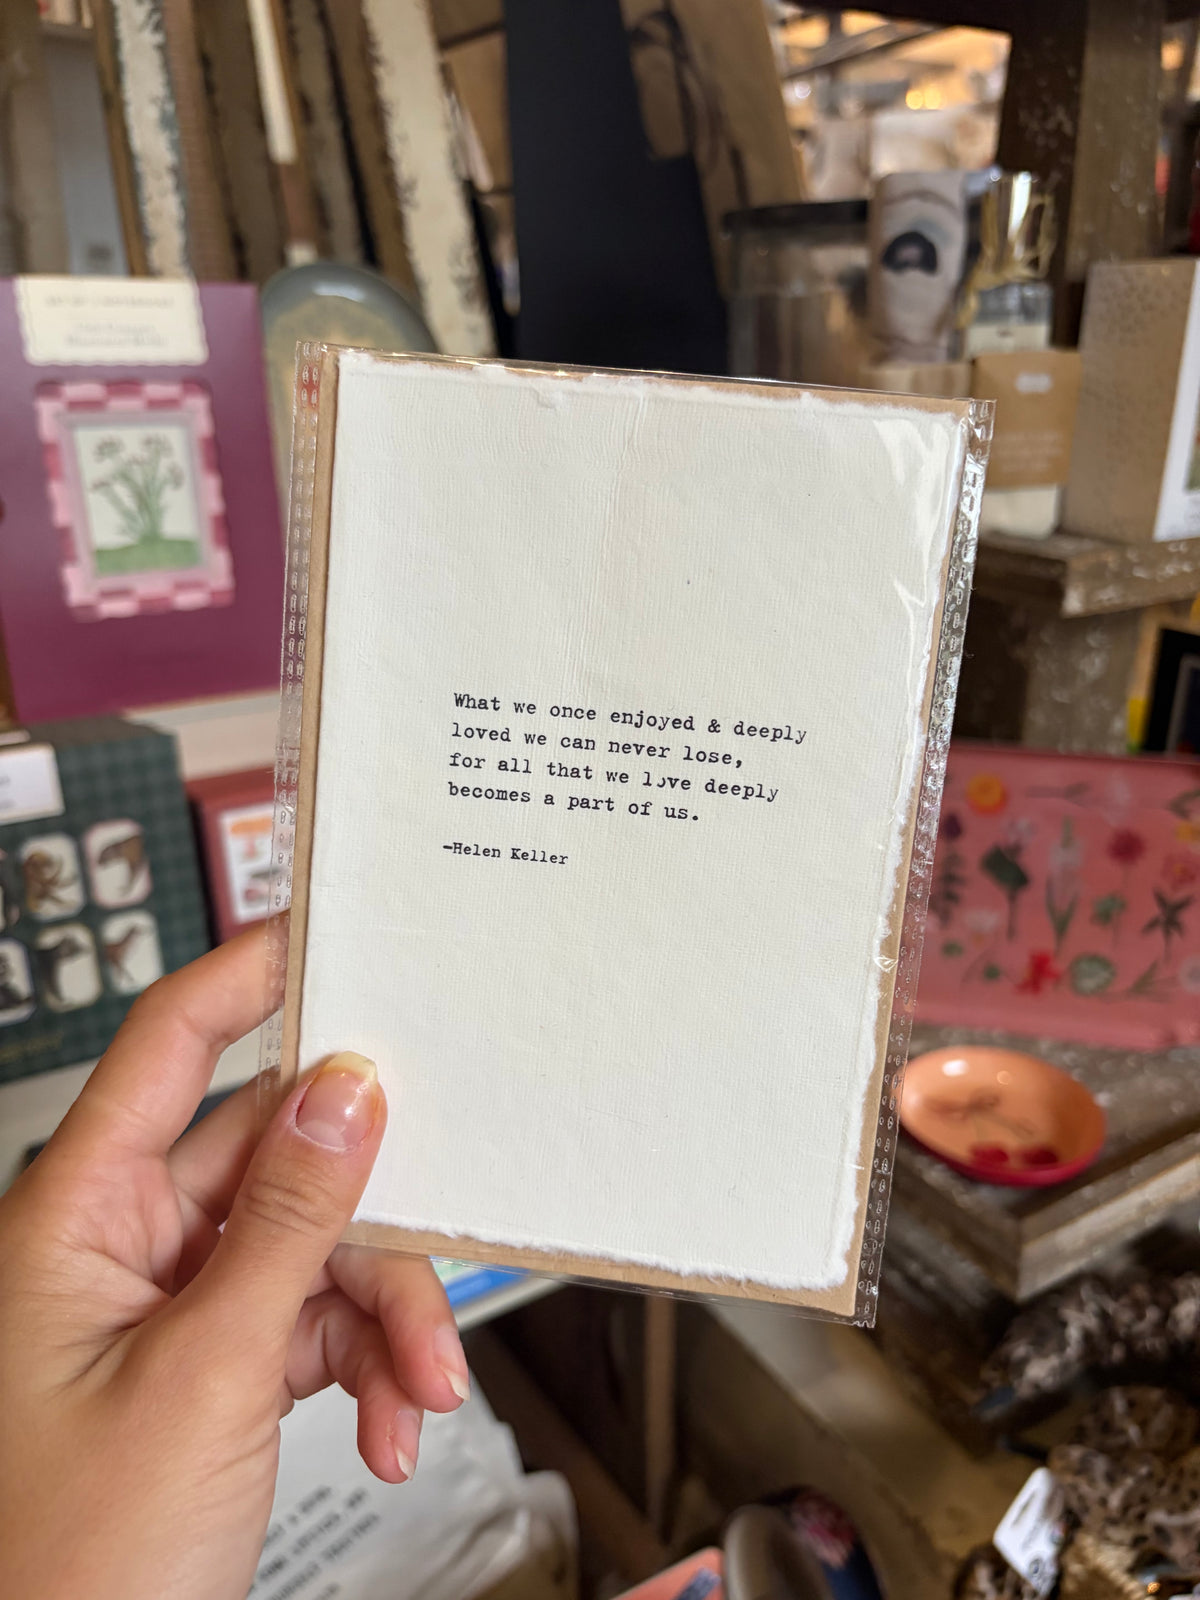 What we once enjoyed & deeply
loved we can never lose,
for all that we love deeply
becomes a part of us.
—Helen Keller